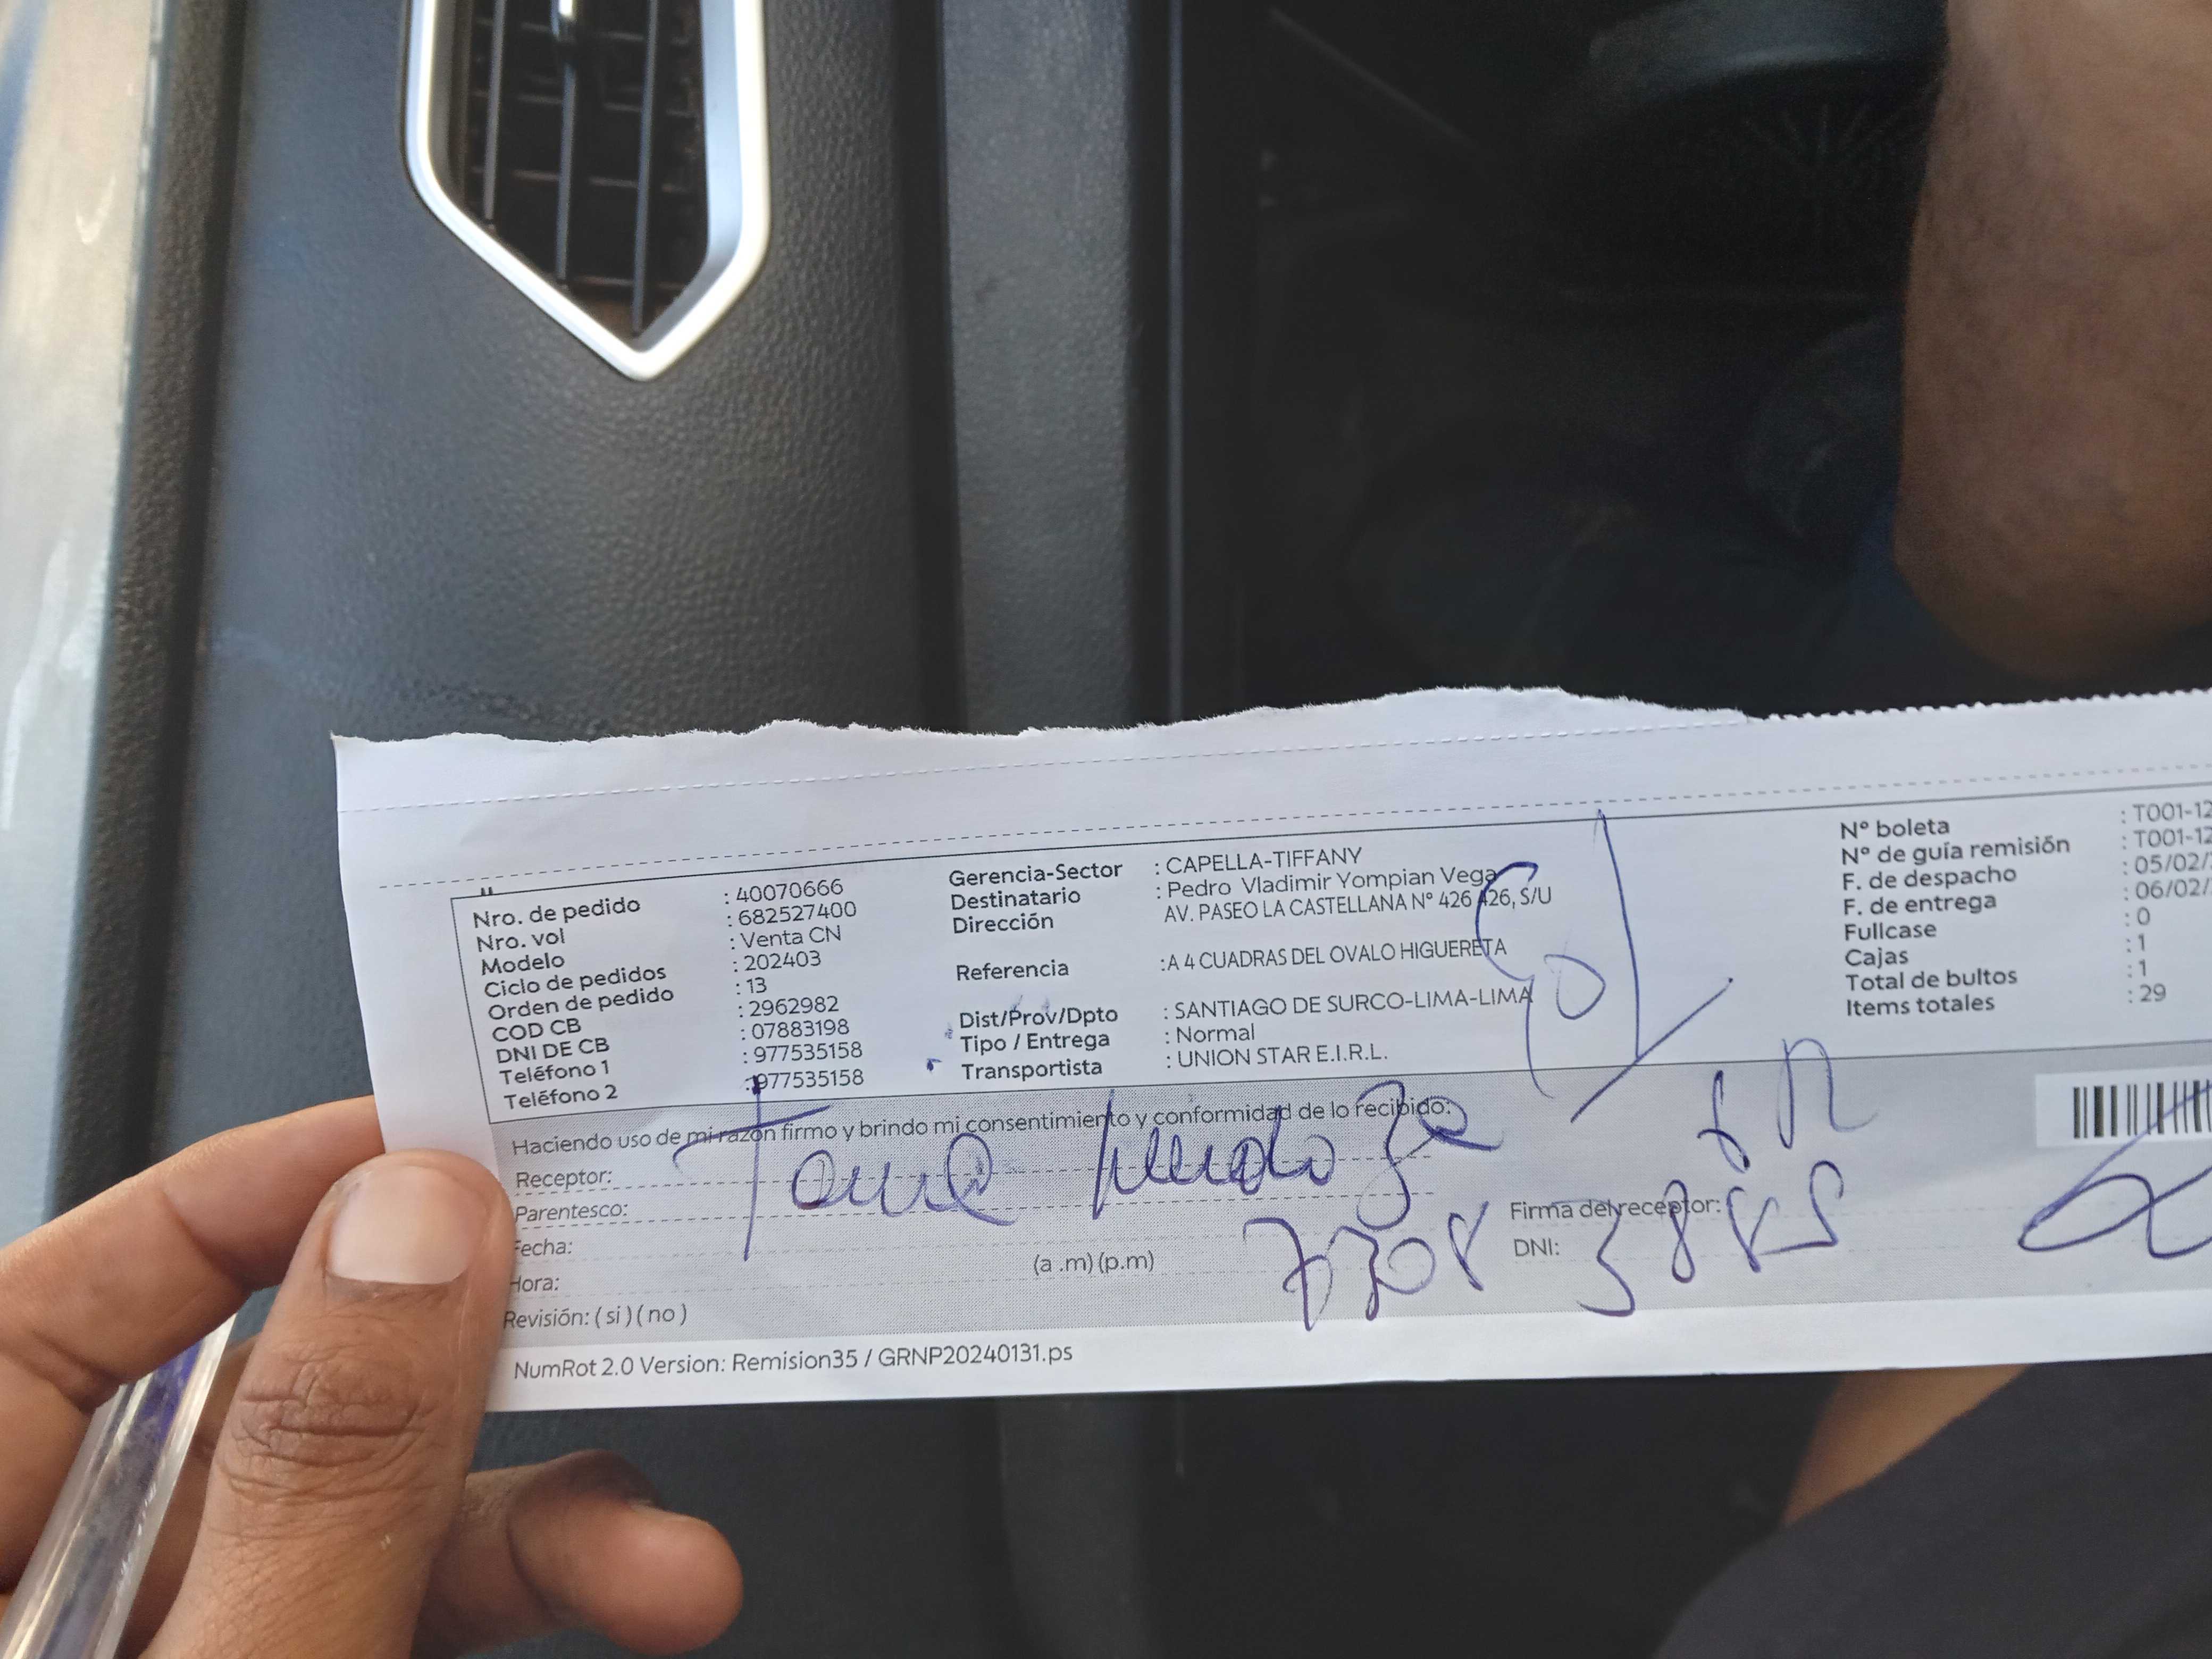 Nro. de pedido : 40070666
Nro. vol : 682527400
Modelo : Venta CN
Ciclo de pedidos : 202403
Orden de pedido : 13
COD CB : 2962982
DNI DE CB : 07883198
Teléfono 1 : 977535158
Teléfono 2 : 977535158
Gerencia-Sector : CAPELLA-TIFFANY
Destinatario : Pedro Vladimir Yompian Vega
Dirección AV. PASEO LA CASTELLANA Nº 426 426, S/U
Referencia :A 4 CUADRAS DEL OVALO HIGUERETA
Dist/Prov/Dpto : SANTIAGO DE SURCO-LIMA-LIMA
Tipo / Entrega : Normal
Transportista : UNION STAR E.I.R.L.
Nº boleta : T001-12
Nº de guía remisión : T001-12
F. de despacho : 05/02/
F. de entrega : 06/02/
Fullcase : 0
Cajas : 1
Total de bultos : 1
Items totales : 29
Haciendo uso de mi razón firmo y brindo mi consentimiento y conformidad de lo recibido:
Receptor:
Parentesco:
Fecha:
Hora: (a .m) (p.m)
Revisión: ( si ) ( no )
Firma del receptor:
DNI:
NumRot 2.0 Version: Remision35 / GRNP20240131.ps